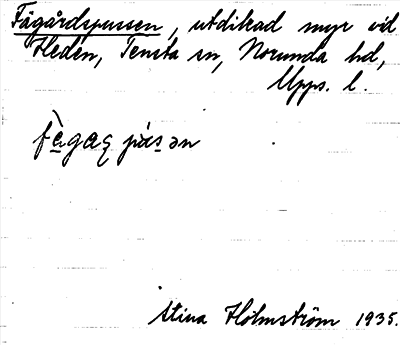 Fägårdspussen, utdikad myr vid
Heden, Tensta sn, Norunda hd,
Upps. l.
Stina Holmström 1935.